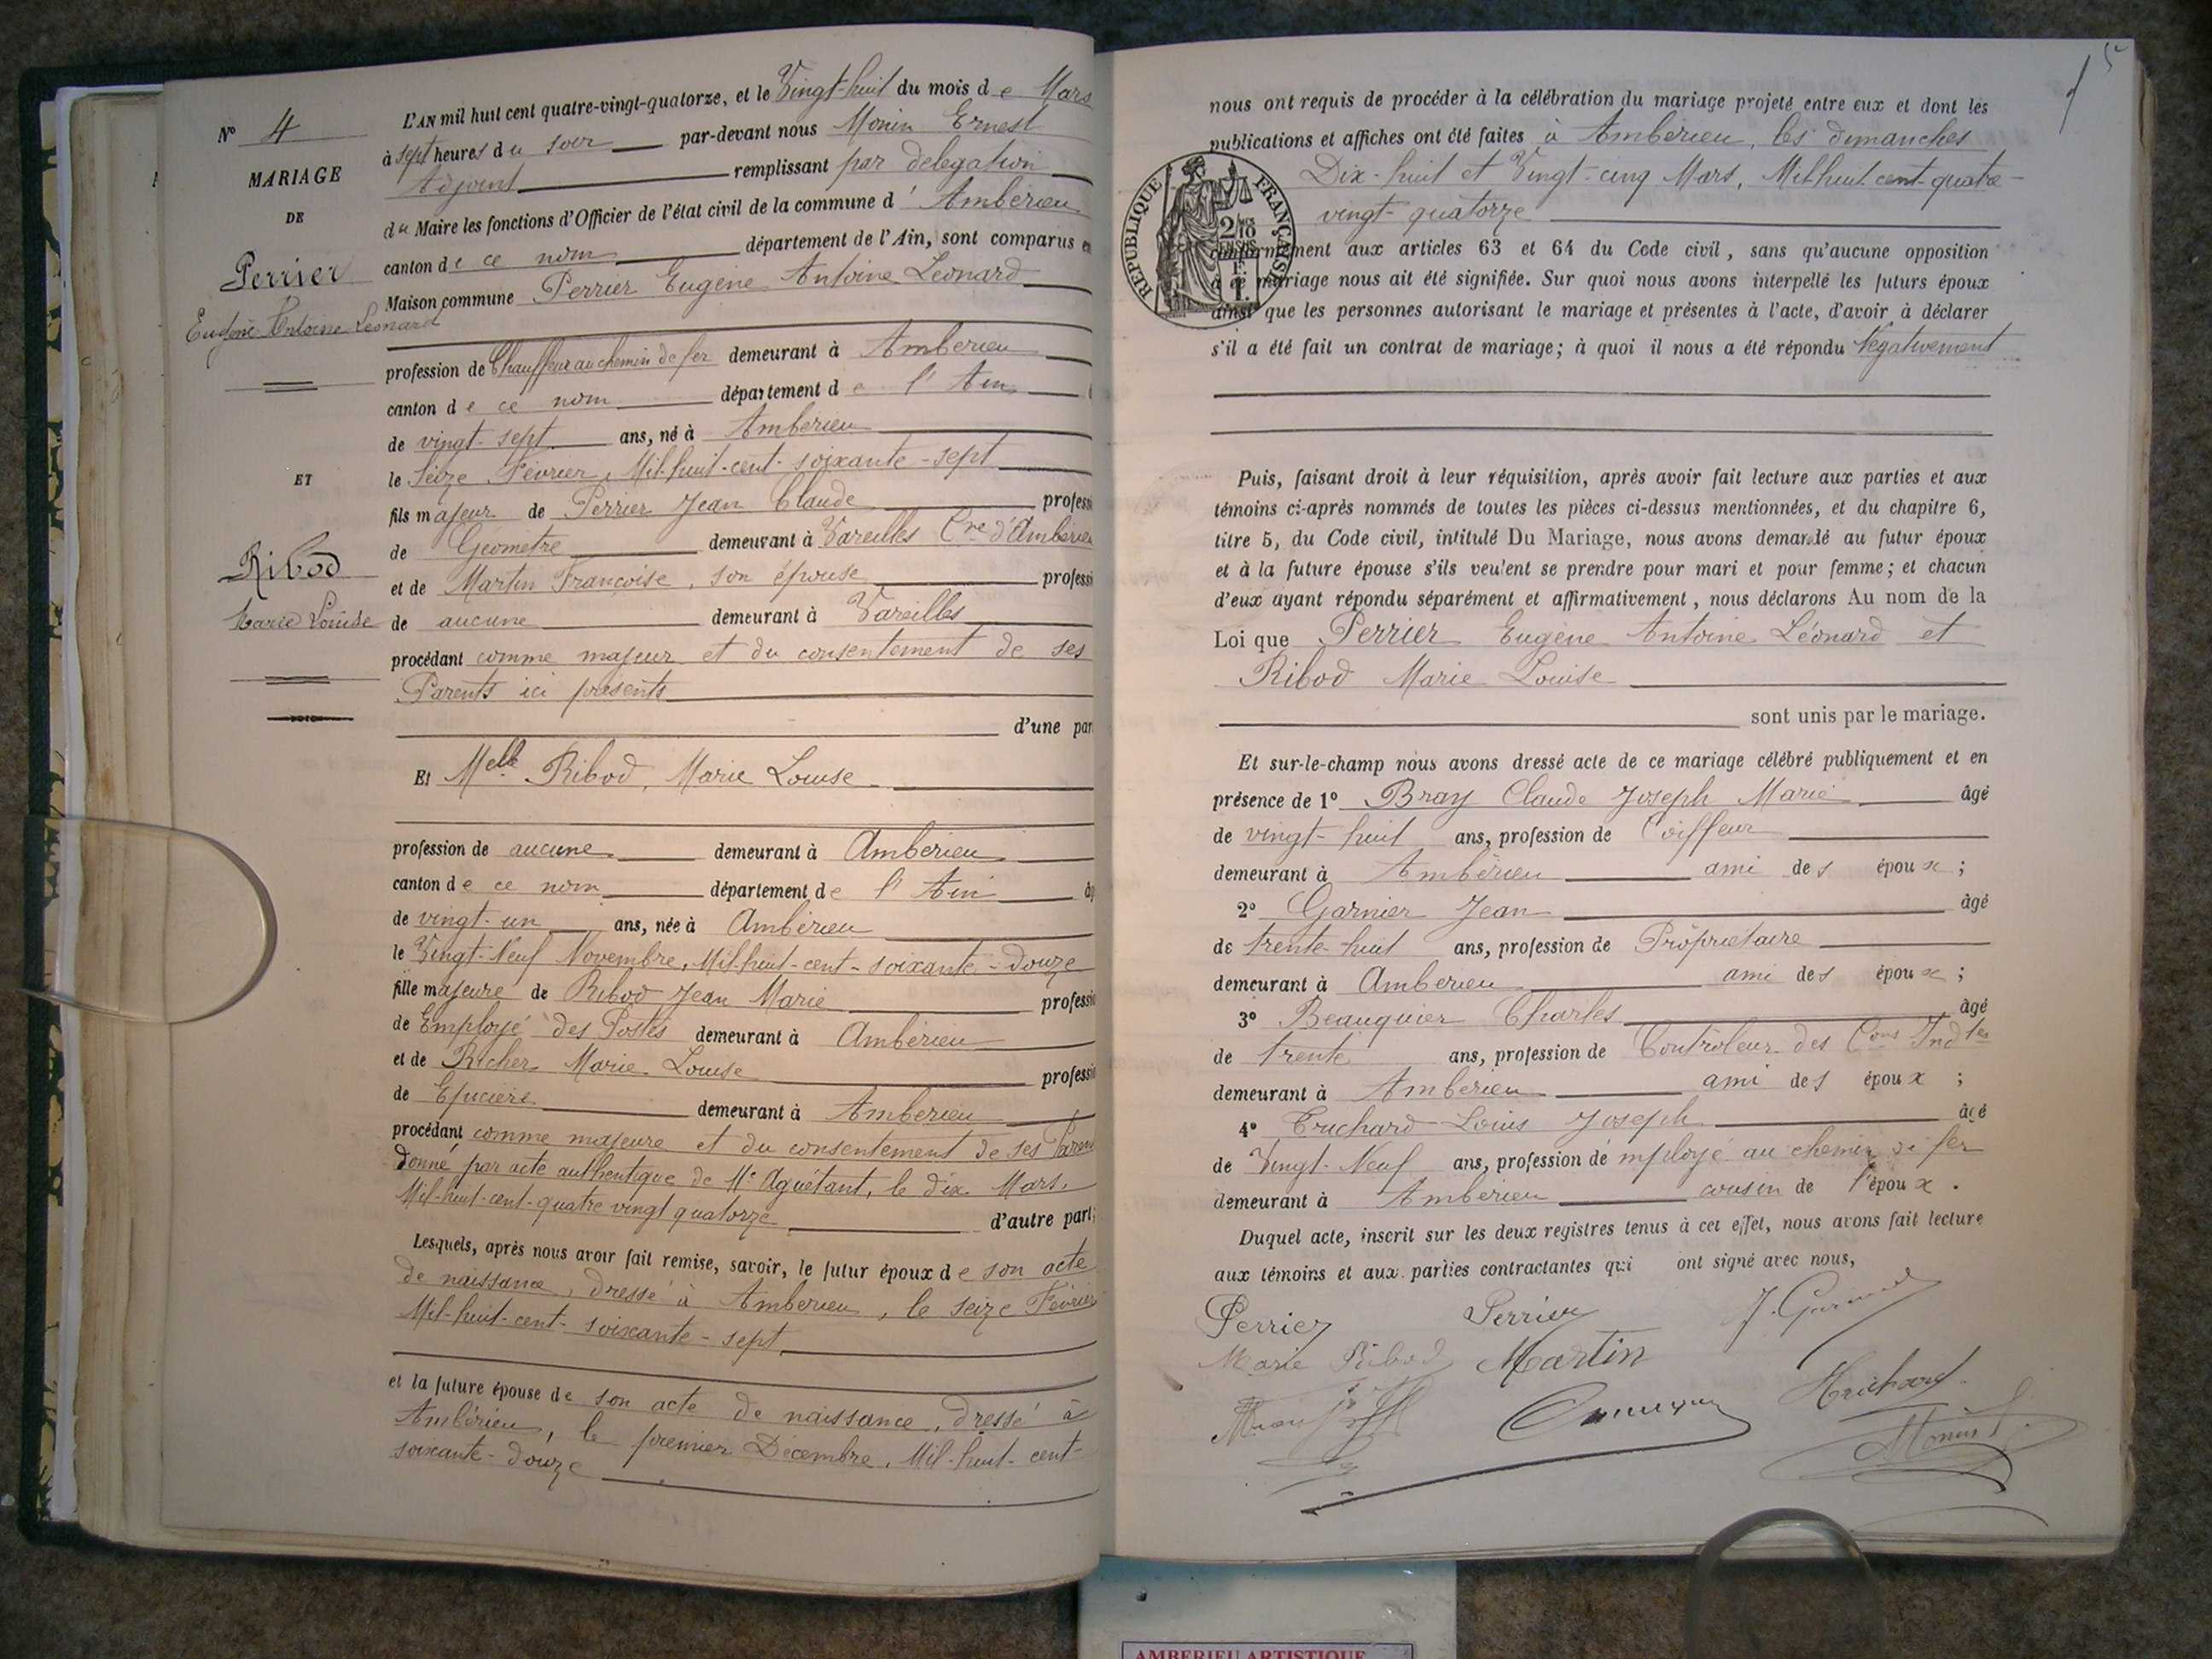 N° 4
MARIAGE
DE
Perrier
Eugène Antoine Léonard
ET
Ribod
Marie Louise
L'AN mil huit cent quatre-vingt-quatorze, et le Vingt-huit du mois de Mars
à sept heures du soir par-devant nous Monin Ernest
Adjoint remplissant par délégation
du Maire les fonctions d'Officier de l'état civil de la commune d'Ambérieu
canton de ce nom département de l'Ain, sont comparus en
Maison commune Perrier Eugène Antoine Léonard
profession de Chauffeur au chemin de fer demeurant à Ambérieu
canton de ce nom département de l'Ain
de vingt-sept ans, né à Ambérieu
le Seize Février, Mil-huit-cent-soixante-sept
fils majeur de Perrier Jean Claude professi
de Géomètre demeurant à Vareilles Cne d'Ambérieu
et de Martin Françoise, son épouse professi
de aucune demeurant à Vareilles
procédant comme majeur et du consentement de ses
Parents ici présents
d'une par
Et Melle Ribod, Marie Louise
profession de aucune demeurant à Ambérieu
canton de ce nom département de l'Ain âg
de vingt-un ans, née à Ambérieu
le Vingt-Neuf Novembre, Mil-huit-cent-soixante-douze
fille majeure de Ribod Jean Marie professi
de Employé des Postes demeurant à Ambérieu
et de Richer Marie Louise professi
de Epicière demeurant à Ambérieu
procédant comme majeure et du consentement de ses Parents
donné par acte authentique de Me Aguétant, le dix Mars,
Mil-huit-cent-quatre vingt quatorze d'autre part;
Lesquels, après nous avoir fait remise, savoir, le futur époux de son acte
de naissance, dressé à Ambérieu, le seize Février
Mil-huit-cent-soixante-sept
et la future épouse de son acte de naissance, dressé à
Ambérieu, le premier Décembre, Mil-huit-cent-
soixante-douze
5
nous ont requis de procéder à la célébration du mariage projeté entre eux et dont les
publications et affiches ont été faites à Ambérieu, les dimanches
Dix-huit et Vingt-cinq Mars, Mil huit cent-quatre-
vingt-quatorze
REPUBLIQUE FRANÇAISE
conformément aux articles 63 et 64 du Code civil, sans qu'aucune opposition
à ce mariage nous ait été signifiée. Sur quoi nous avons interpellé les futurs époux
ainsi que les personnes autorisant le mariage et présentes à l'acte, d'avoir à déclarer
s'il a été fait un contrat de mariage; à quoi il nous a été répondu Négativement
Puis, faisant droit à leur réquisition, après avoir fait lecture aux parties et aux
témoins ci-après nommés de toutes les pièces ci-dessus mentionnées, et du chapitre 6,
titre 5, du Code civil, intitulé Du Mariage, nous avons demandé au futur époux
et à la future épouse s'ils veulent se prendre pour mari et pour femme; et chacun
d'eux ayant répondu séparément et affirmativement, nous déclarons Au nom de la
Loi que Perrier Eugène Antoine Léonard et
Ribod Marie Louise
sont unis par le mariage.
Et sur-le-champ nous avons dressé acte de ce mariage célébré publiquement et en
présence de 1° Bray Claude Joseph Marie âgé
de vingt-huit ans, profession de Coiffeur
demeurant à Ambérieu ami des époux ;
2° Garnier Jean âgé
de trente-huit ans, profession de Propriétaire
demeurant à Ambérieu ami des époux ;
3° Beauquier Charles âgé
de trente ans, profession de Contrôleur des Cons Indtes
demeurant à Ambérieu ami des époux ;
4° Truchard Louis Joseph âgé
de Vingt-Neuf ans, profession d'employé au chemin de fer
demeurant à Ambérieu cousin de l'époux.
Duquel acte, inscrit sur les deux registres tenus à cet effet, nous avons fait lecture
aux témoins et aux parties contractantes qui ont signé avec nous,
Perrier Perrier J. Garnier
Marie Ribod Martin
Truchard
Monin
AMBERIEU ARTISTIQUE